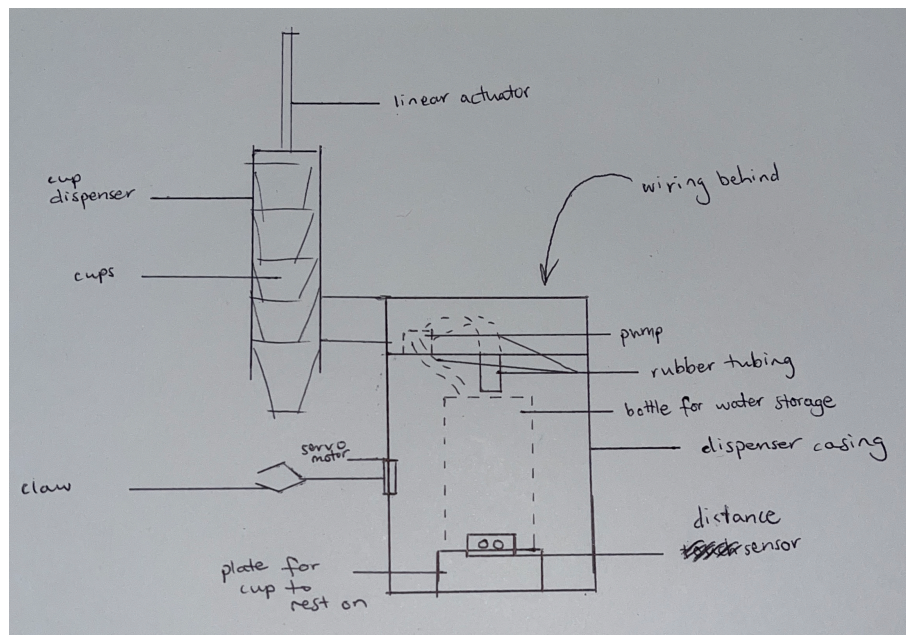 linear actuator
cup
dispenser
wiring behind
cups
pump
rubber tubing
bottle for water storage
servo
motor
dispenser casing
claw
distance
sensor
plate for
cup to
rest on